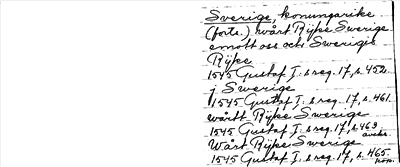 Sverige, konungarike
(forts.) wårt Rijke Swerige
emott oss och Sweriges
Rijke
1545 Gustaf I:s reg. 17, s. 452.
j Swerige
1545 Gustaf I:s reg. 17, s. 461.
wårtt Rijke Swerige
1545 Gustaf I:s reg. 17, s. 463
avskr.
Wårt Rijke Swerige
1545 Gustaf I:s reg. 17, s. 465.